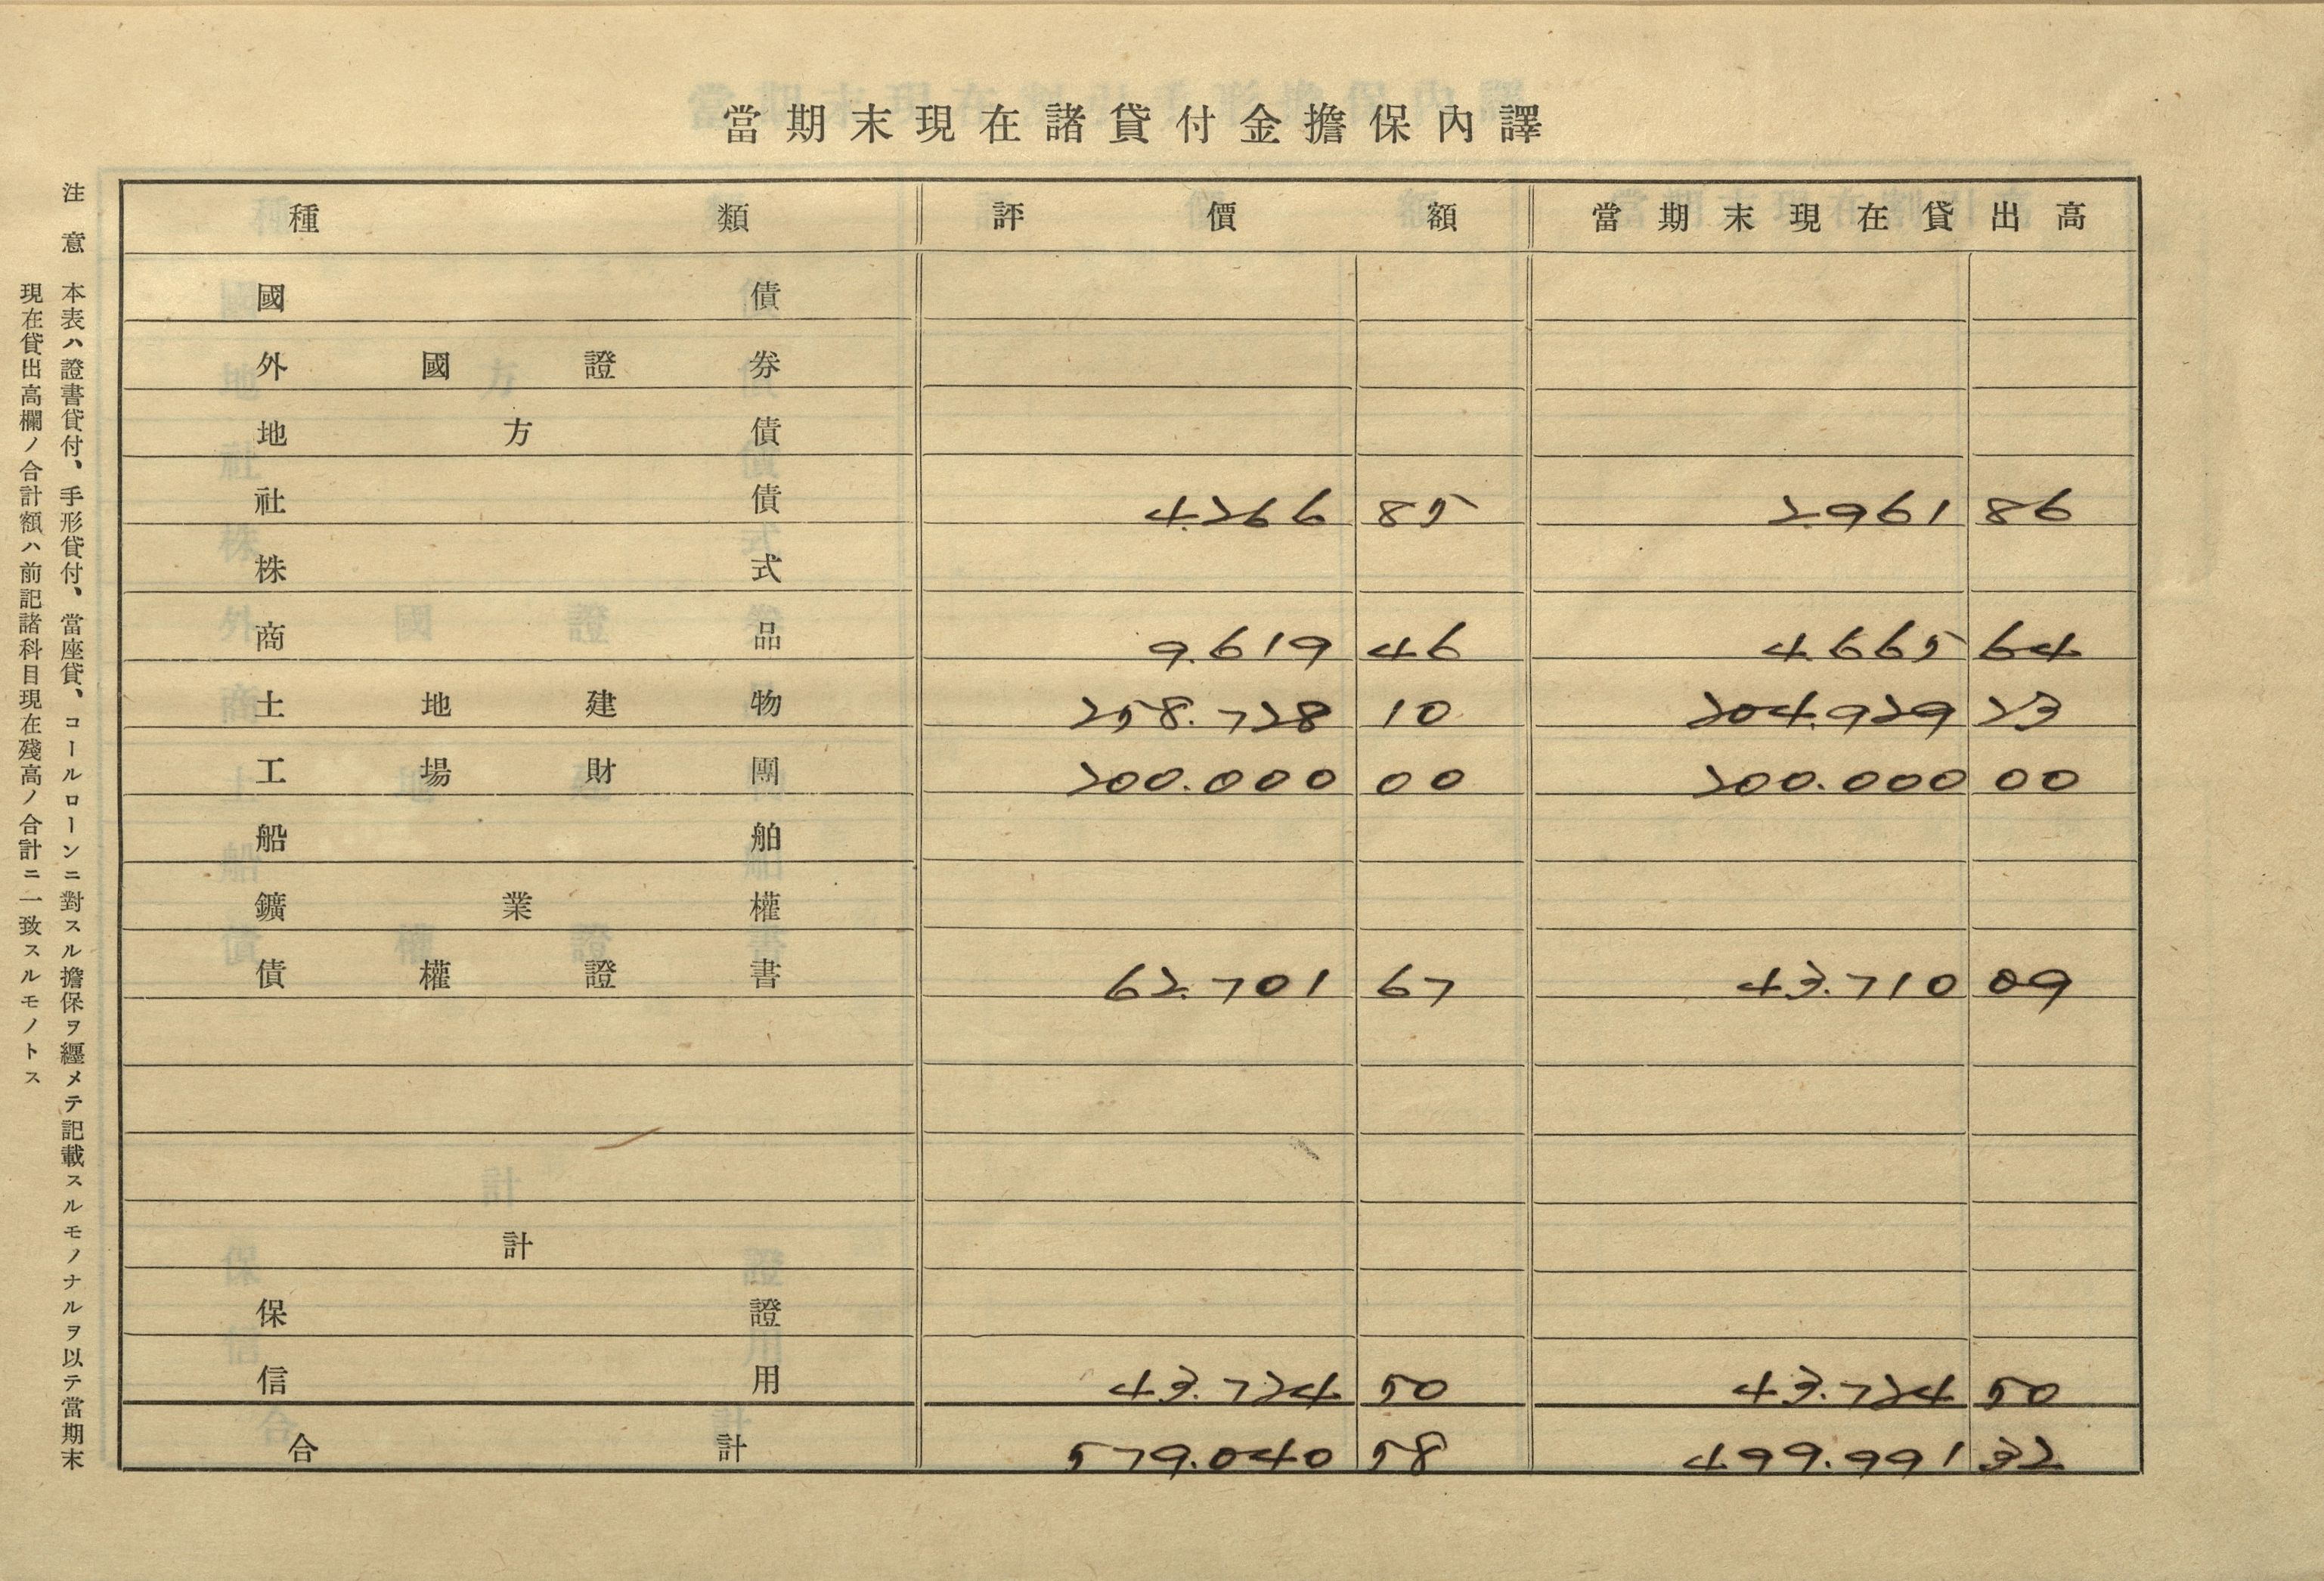 當期末現在諸貸付金擔保內譯
種類 評價額 當期末現在貸出高
國債
外國證券
地方債
社債 4.266 85 2.961 86
株式
商品 9.619 46 4.665 64
土地建物 258.728 10 204.929 23
工場財團 200.000 00 200.000 00
船舶
鑛業權
債權證書 62.701 67 43.710 09
計
保證
信用 43.724 50 43.724 50
合計 579.040 58 499.991 32
注意 本表ハ證書貸付、手形貸付、當座貸、コールローンニ對スル擔保ヲ纒メテ記載スルモノナルヲ以テ當期末
現在貸出高欄ノ合計額ハ前記諸科目現在殘高ノ合計ニ一致スルモノトス